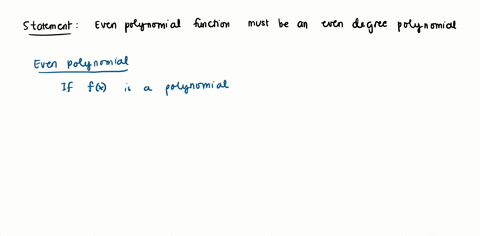 Statement: Even polynomial function must be an even degree polynomial
Even polynomial
If f(x) is a polynomial